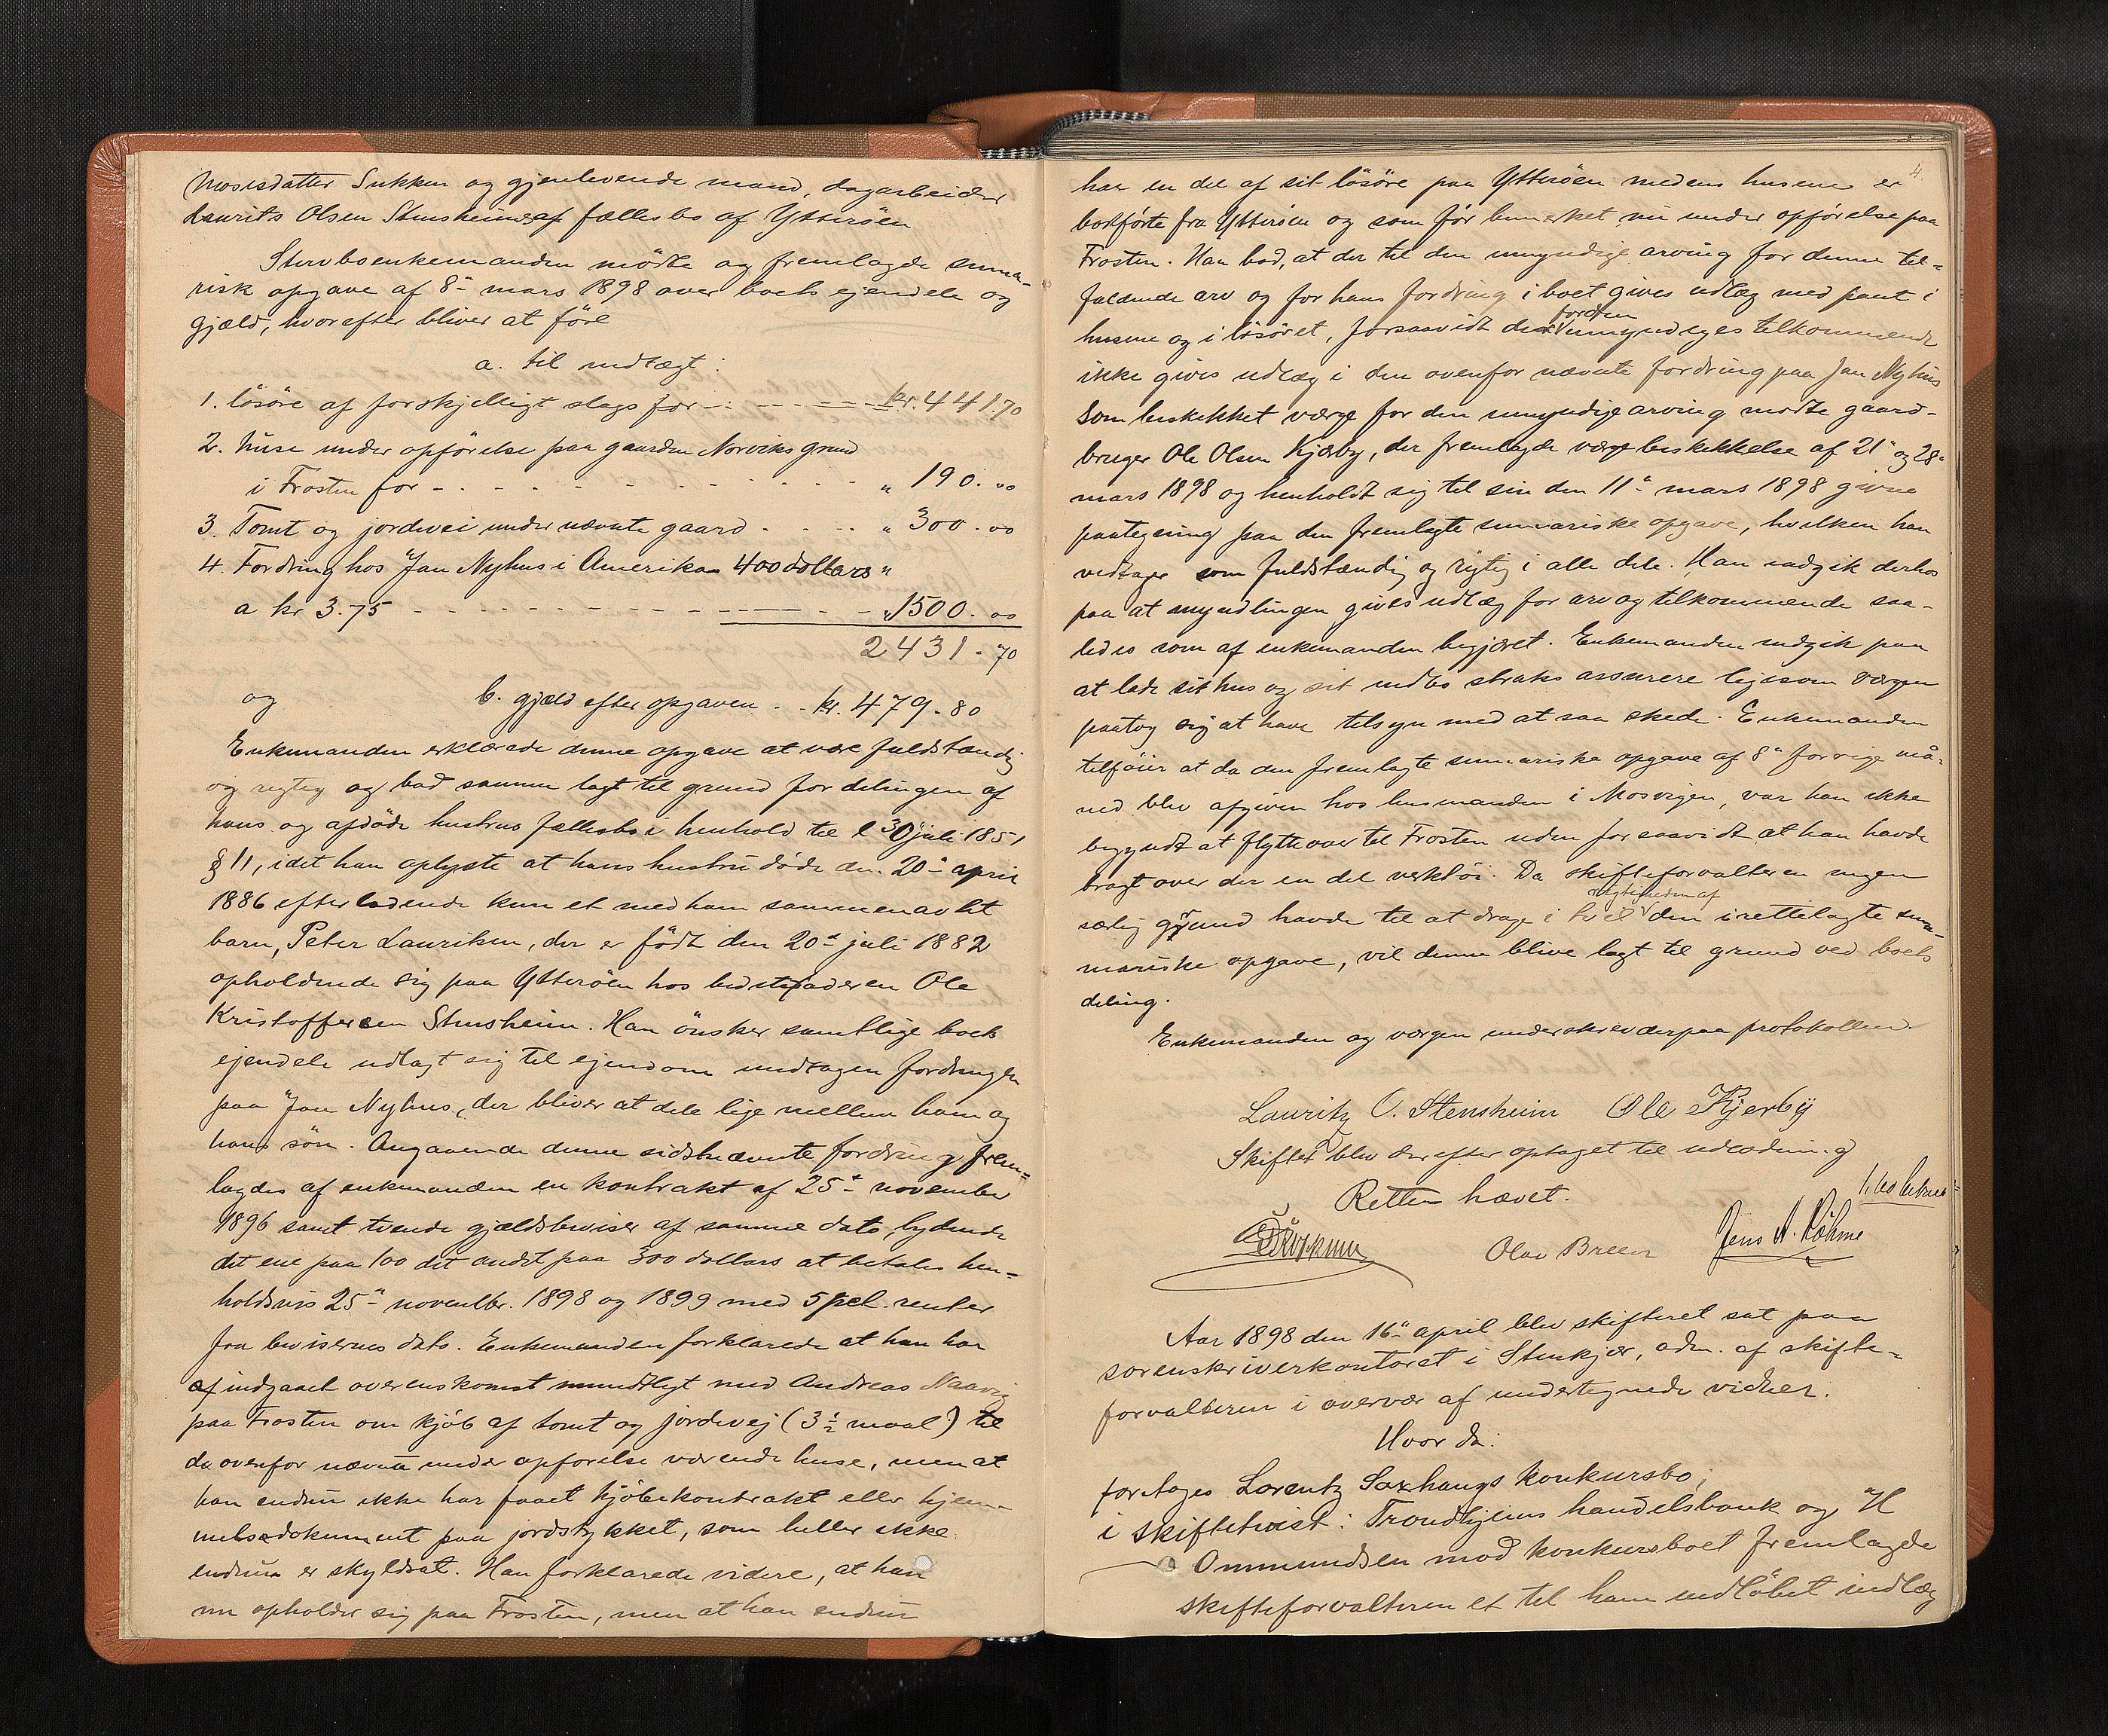 Mosesdatter Sukken og gjenlevende mand, dagarbeider
Laurits Olsen Stensheims fællesbo af Ytterøen
Stervboenkemanden mødte og fremlagde summa-
risk opgave af 8de mars 1898 over boets ejendele og
gjæld, hvorefter bliver at føre
a. til indtægt:
1. løsøre af forskjelligt slags for kr. 441.70
2. huse under opførelse paa gaarden Norviks grund
i Frosten for - " 190. 00
3. Tomt og jordvei under nævnte gaard " 300. 00
4. Fordring hos Jan Nyhus i Amerika 400 dollars "
a kr 3.75 " 1500. 00
2431. 70
og b. gjæld efter opgaven kr. 479. 80
Enkemanden erklærede denne opgave at være fuldstændig
og rigtig og bad samme lagt til grund for delingen af
hans og afdøde hustrus fællesbo i henhold til l 30 juli 1851
§ 11, idet han oplyste at hans hustru døde den 20de april
1886 efterladende kun et med ham sammenavlet
barn, Peter Lauritsen, der er født den 20de juli 1882
opholdende sig paa Ytterøen hos bedstefaderen Ole
Kristoffersen Stensheim. Han ønsker samtlige boets
ejendele udlagt sig til ejendom undtagen fordringen
paa Jan Nyhus, der bliver at dele lige mellem ham og
hans søn. Angaaende denne sidstnævnte fordring frem-
lagdes af enkemanden en kontrakt af 25de november
1896 samt tvende gjældsbeviser af samme dato, lydende
det ene paa 100 det andet paa 300 dollars at betales hen-
holdsvis 25de novembr. 1898 og 1899 med 5 pct. renter
fra bevisernes dato. Enkemanden forklarede at han har
indgaaet overenskomst mundtligt med Andreas Naavig
paa Frosten om kjøb af tomt og jordvej (3 1/2 maal) til
de ovenfor nævnte under opførelse værende huse, men at
han endnu ikke har faaet kjøbekontrakt eller hjem-
melsdokument paa jordstykket, som heller ikke
endnu er skyldsat. Han forklarede videre, at han
nu opholder sig paa Frosten, men at han endnu
4.
har en del af sit løsøre paa Ytterøen medens husene er
bortførte fra Ytterøen og som før bemerket nu under opførelse paa
Frosten. Han bad, at der til den umyndige arving for denne til-
faldende arv og for hans fordring i boet gives udlæg med pant i
husene og i løsøret, forsaavidt der for den umyndiges tilkommende
ikke gives udlæg i den ovenfor nævnte fordring paa Jan Nyhus
Som beskikket værge for den umyndige arving mødte gaard-
bruger Ole Olsen Kjærby, der fremlagde værgebeskikkelse af 21de og 28de
mars 1898 og henholdt sig til sin den 11te mars 1898 givne
paategning paa den fremlagte summariske opgave, hvilken han
vedtager som fuldstændig og rigtig i alle dele. Han indgik derhos
paa at myndlingen gives udlæg for arv og tilkommende saa-
ledes som af enkemanden begjæret. Enkemanden indgik paa
at lade sit hus og sit indbo straks assurere ligesom værgen
paatog sig at have tilsyn med at saa skede. Enkemanden
tilføier at da den fremlagte summariske opgave af 8de forrige må-
ned blev afgiven hos lensmanden i Mosvigen, var han ikke
begyndt at flytte over til Frosten uden forsaavidt at han havde
bragt over der en del verktøi. Da skifteforvalteren ingen
særlig grund havde til at drage i tvil rigtigheden af den i rettelagte sum-
mariske opgave, vil denne blive lagt til grund ved boets
deling.
Enkemanden og værgen underskrev derpaa protokollen.
Lauritz O. Stensheim Ole Kjerby
Skiftet blev derefter optaget til udlodning
Retten hævet.
Olav Breen Jens A. Bøhme
Aar 1898 den 16de april blev skifteret sat paa
sorenskriverkontoret i Stenkjær, adm. af skifte-
forvalteren i overvær af undertegnede vidner.
Hvor da:
foretages Lorentz Saxhaugs konkursbo,
i skiftetvist: Trondhjems handelsbank og H
Ommundsen mod konkursboet fremlagde
skifteforvalteren et til ham indløbet indlæg